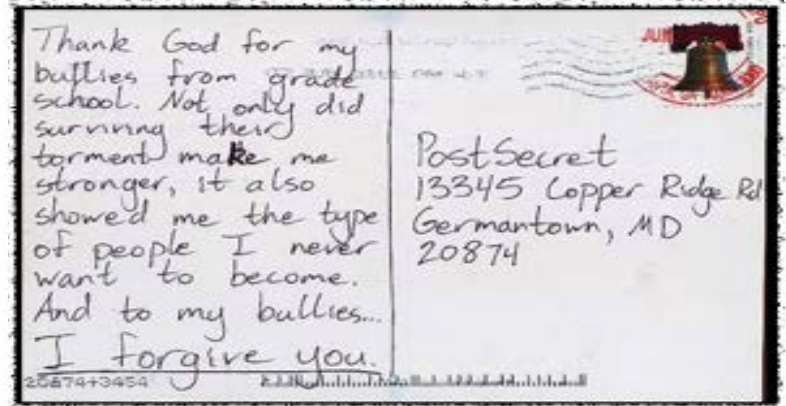 Thank God for my
bullies from grade
school. Not only did
surviving their
torment make me
stronger, it also
showed me the type
of people I never
want to become.
And to my bullies...
I forgive you.
20874+3454
JUN
PostSecret
13345 Copper Ridge Rd
Germantown, MD
20874